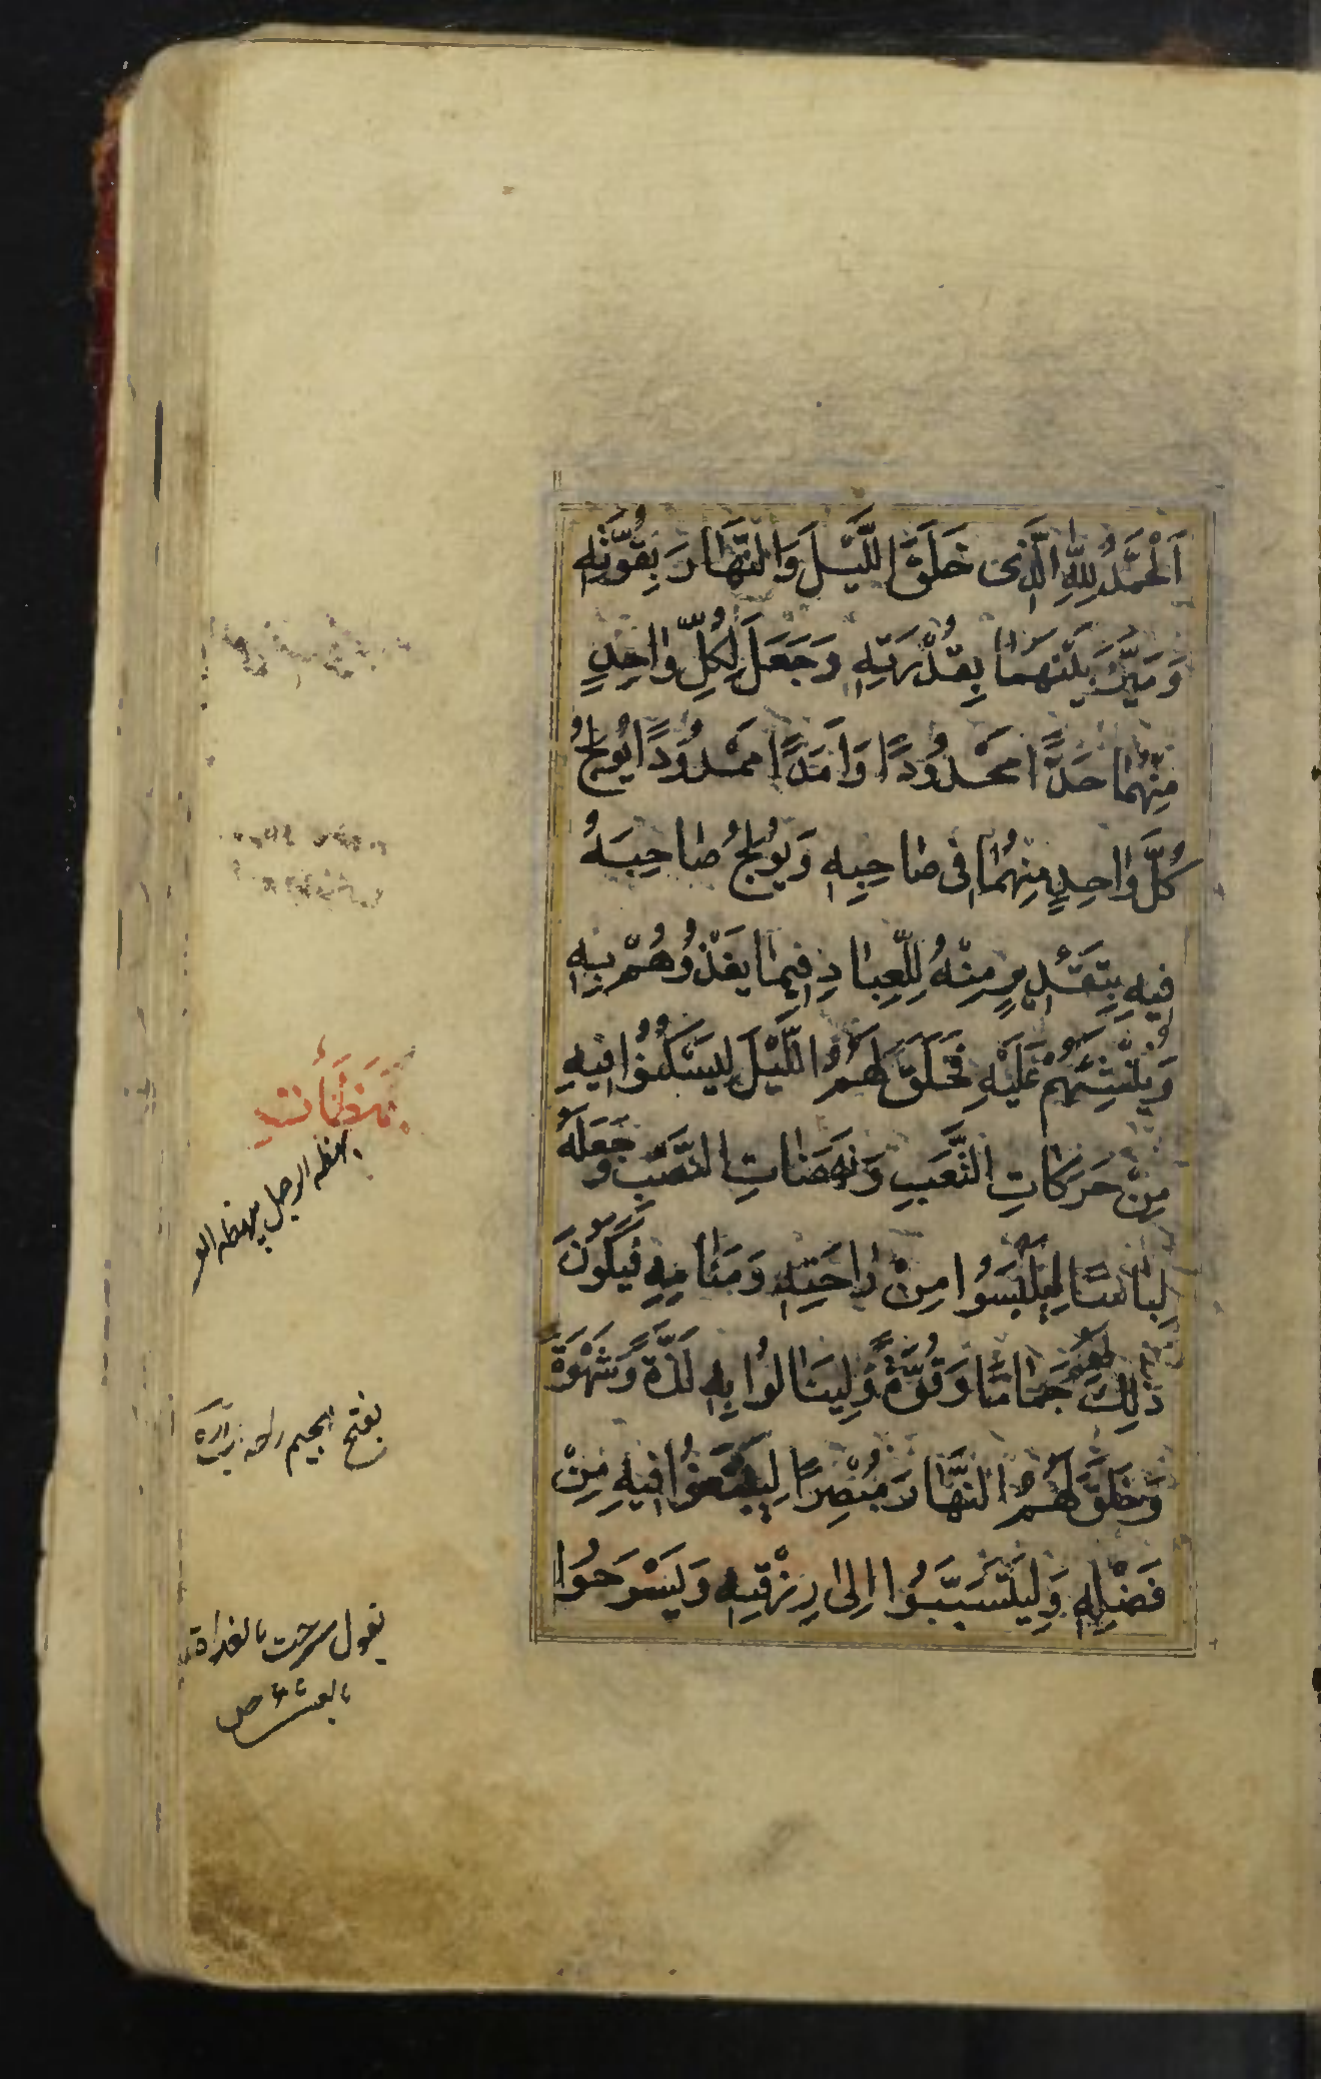 اَلْحَمْدُ لِلّٰهِ الَّذِى خَلَقَ اللَّيْلَ وَالنَّهَارَ بِقُوَّتِهِ
وَمَيَّزَ بَيْنَهُمَا بِقُدْرَتِهِ وَجَعَلَ لِكُلِّ وَاحِدٍ
مِنْهُمَا حَدًّا مَحْدُودًا وَاَمَدًا مَمْدُودًا يُولِجُ
كُلَّ وَاحِدٍ مِنْهُمَا فِى صَاحِبِهِ وَيُولِجُ صَاحِبَهُ
فِيهِ بِتَقْدِيرٍ مِنْهُ لِلْعِبَادِ فِيمَا يَغْذُوهُمْ بِهِ
وَيُنْشِئُهُمْ عَلَيْهِ فَخَلَقَ لَهُمُ اللَّيْلَ لِيَسْكُنُوْا فِيهِ
مِنْ حَرَكَاتِ التَّعَبِ وَنَهَضَاتِ النَّصَبِ وَجَعَلَهُ
لِبَاسًا لِيَلْبَسُوا مِنْ رَاحَتِهِ وَمَنَامِهِ فَيَكُونَ
ذٰلِكَ لَهُمْ جَمَامًا وَقُوَّةً وَلِيَنَالُوا بِهِ لَذَّةً وَشَهْوَةً
وَخَلَقَ لَهُمُ النَّهَارَ مُبْصِرًا لِيَبْتَغُوْا فِيهِ مِنْ
فَضْلِهِ وَلِيَتَسَبَّبُوا اِلىٰ رِزْقِهِ وَيَسْرَحُوا
بَهَظَاتِ
بهظه الرجل يبهظه
بفتح الجيم
تقول سرحت بالغداة